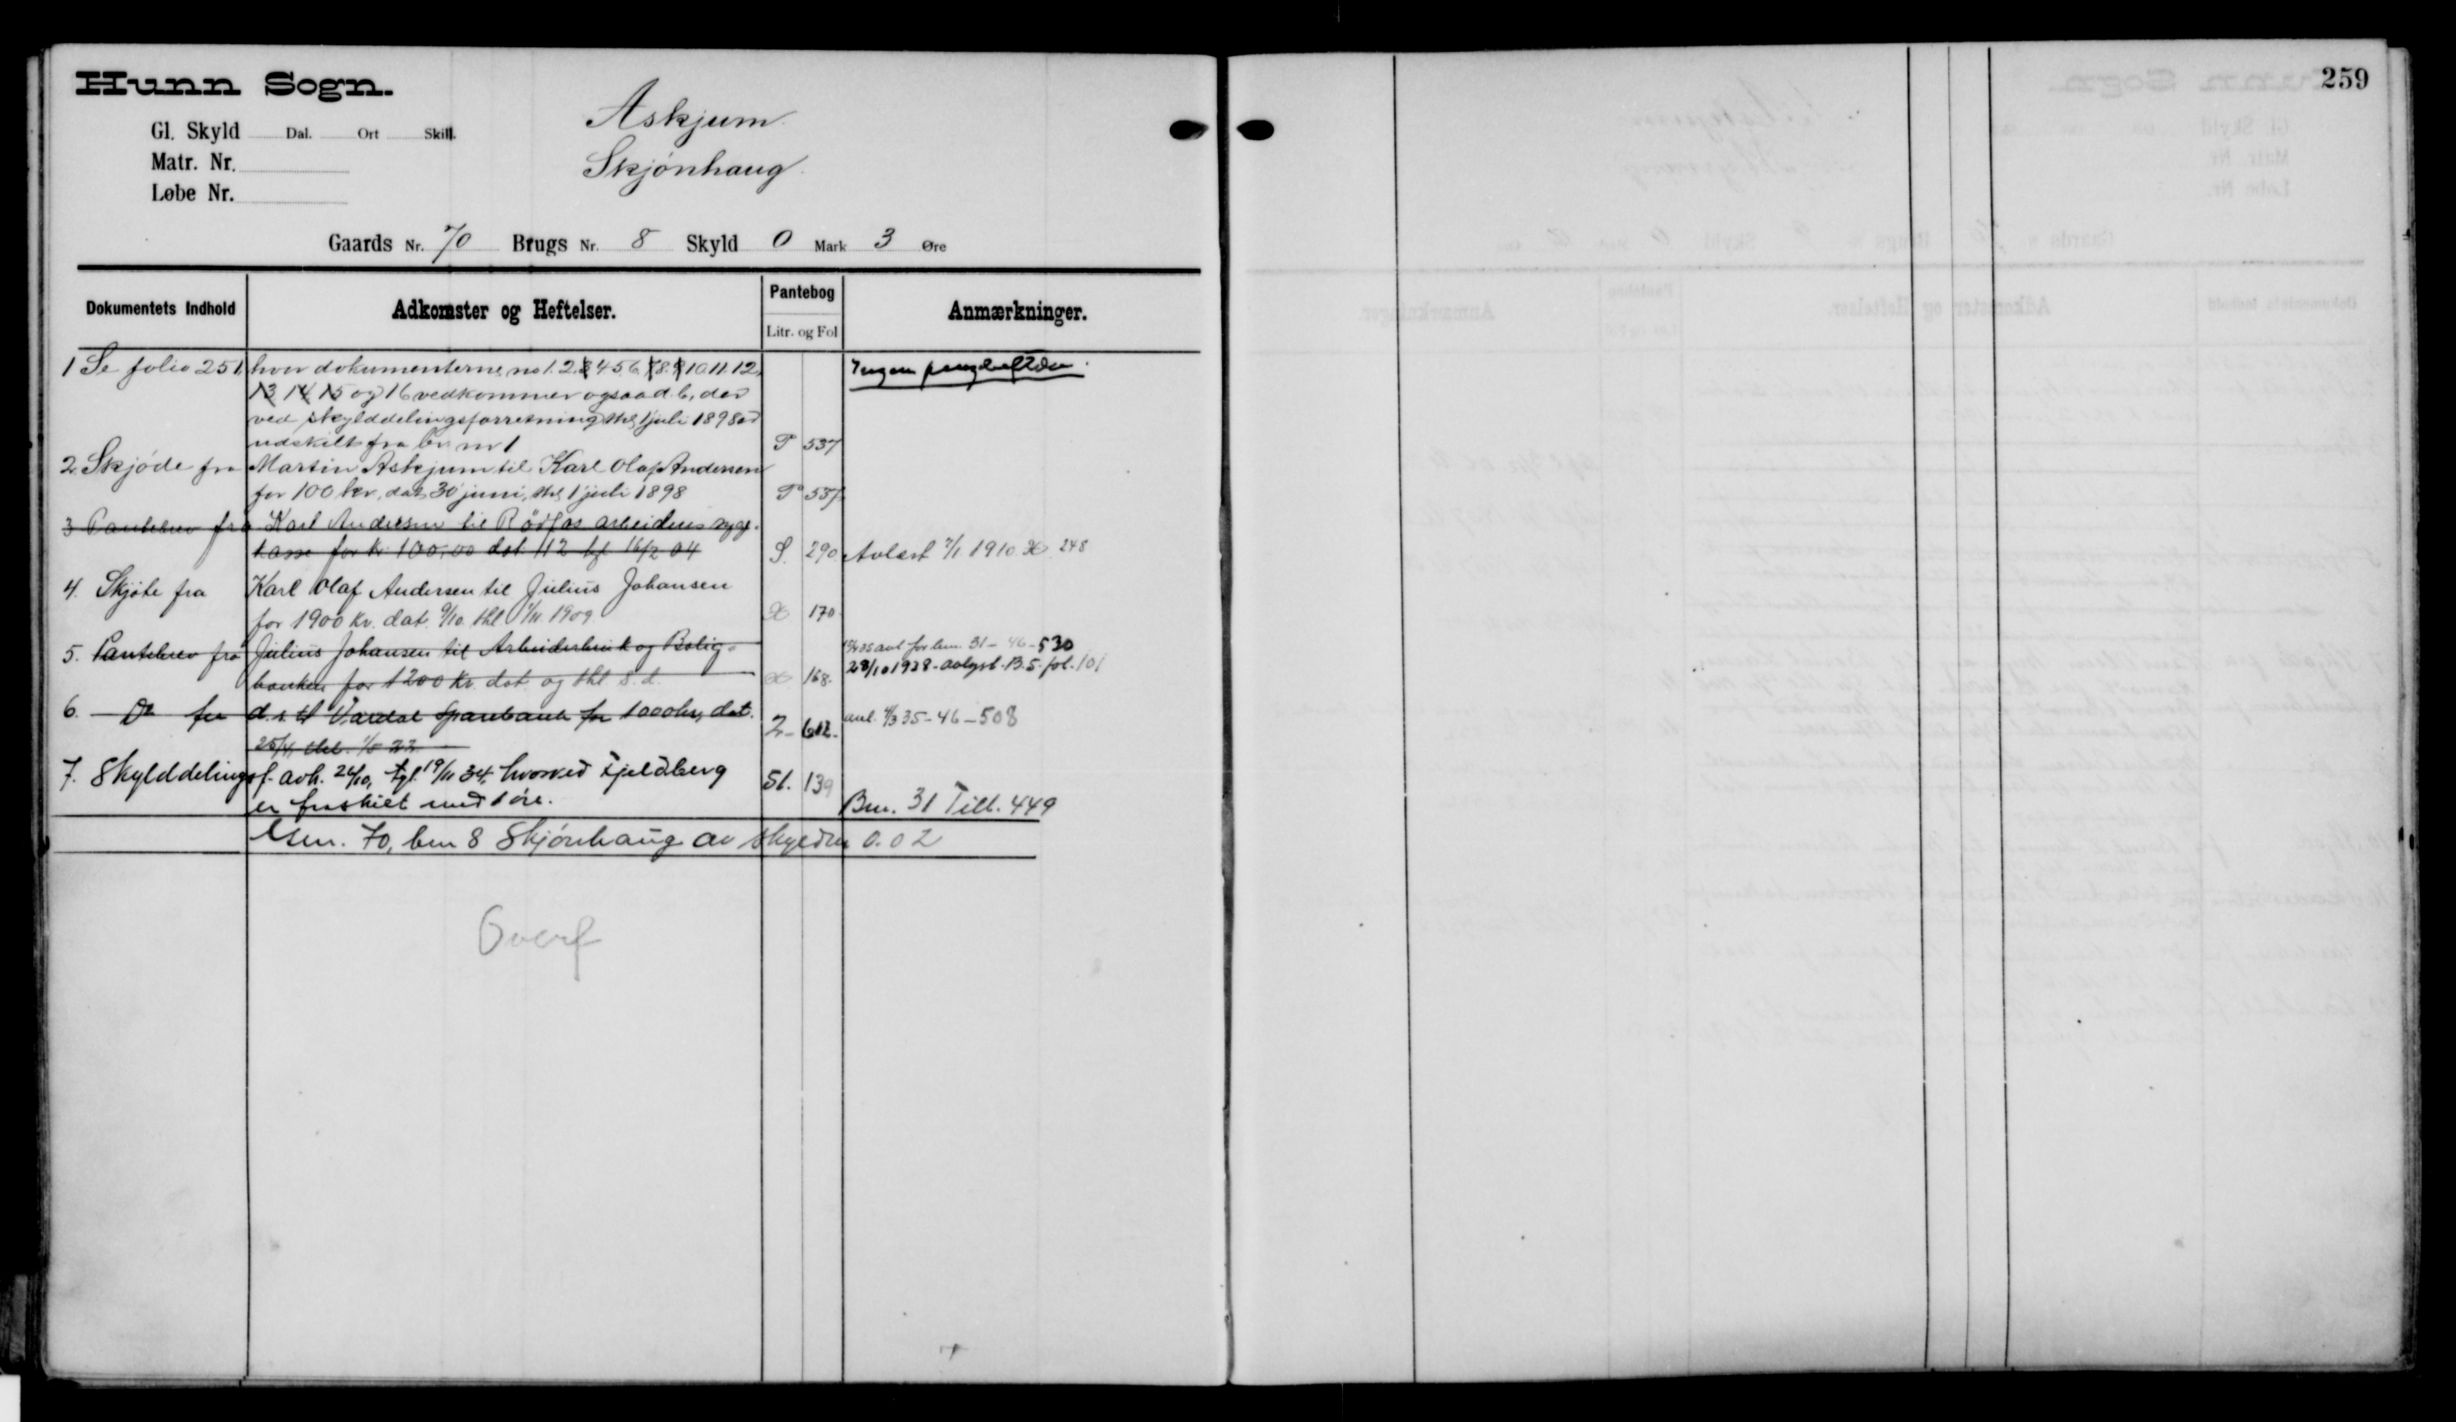 Hunn Sogn.
259
Gl. Skyld Dal. Ort Skill.
Matr. Nr.
Løbe Nr.
Askjum
Skjönhaug
Gaards Nr. 70 Brugs Nr. 8 Skyld 0 Mark 3 Øre
Dokumentets Indhold Adkomster og Heftelser. Pantebog Litr. og Fol Anmærkninger.
1 Se folio 251, hvor dokumenterne no 1. 2. 3 4 5 6. 7 8. 9 10. 11. 12. Ingen pengeheftelser.
13 14 15 og 16 vedkommer ogsaa d. b., der
ved skylddelingsforretning thl 1 juli 1898 er
udskilt fra br. nr 1 P 537
2. Skjöde fra Martin Askjum til Karl Olaf Andersen
for 100 kr, dat 30 juni, thl 1 juli 1898 P 537
3 Pantebrev fra Karl Andersen til Rödfos arbeideres syge-
kasse for kr 100,00 dat 11/2 tgl 16/2 04 S. 290. Avlæst 7/1 1910. 248
4. Skjöte fra Karl Olaf Andersen til Julius Johansen
for 1900 kr. dat. 9/10. thl 1/11 1909 170.
5. Pantebrev fra Julius Johansen til Arbeiderbruk og Bolig- avl for bnr. 31 - 46 - 530
banken for 1200 kr. dat. og thl s. d. 168. 28/10 1928 - avlyst. B. 5. fol. 101
6. Do fra d. s. til Vardal Sparebank for 1000 kr, dat. Z - 602. avl. 4/3 35 - 46 - 508
25/4, thl. 1/5 22.
7. Skylddelingsf. avh. 26/10, tgl. 19/11 34, hvorved Fjeldberg 51. 139
er fraskilt med 1 öre. Bnr. 31 Till. 449
Gnr. 70, bnr 8 Skjönhaug av skyld 0.02
Overf